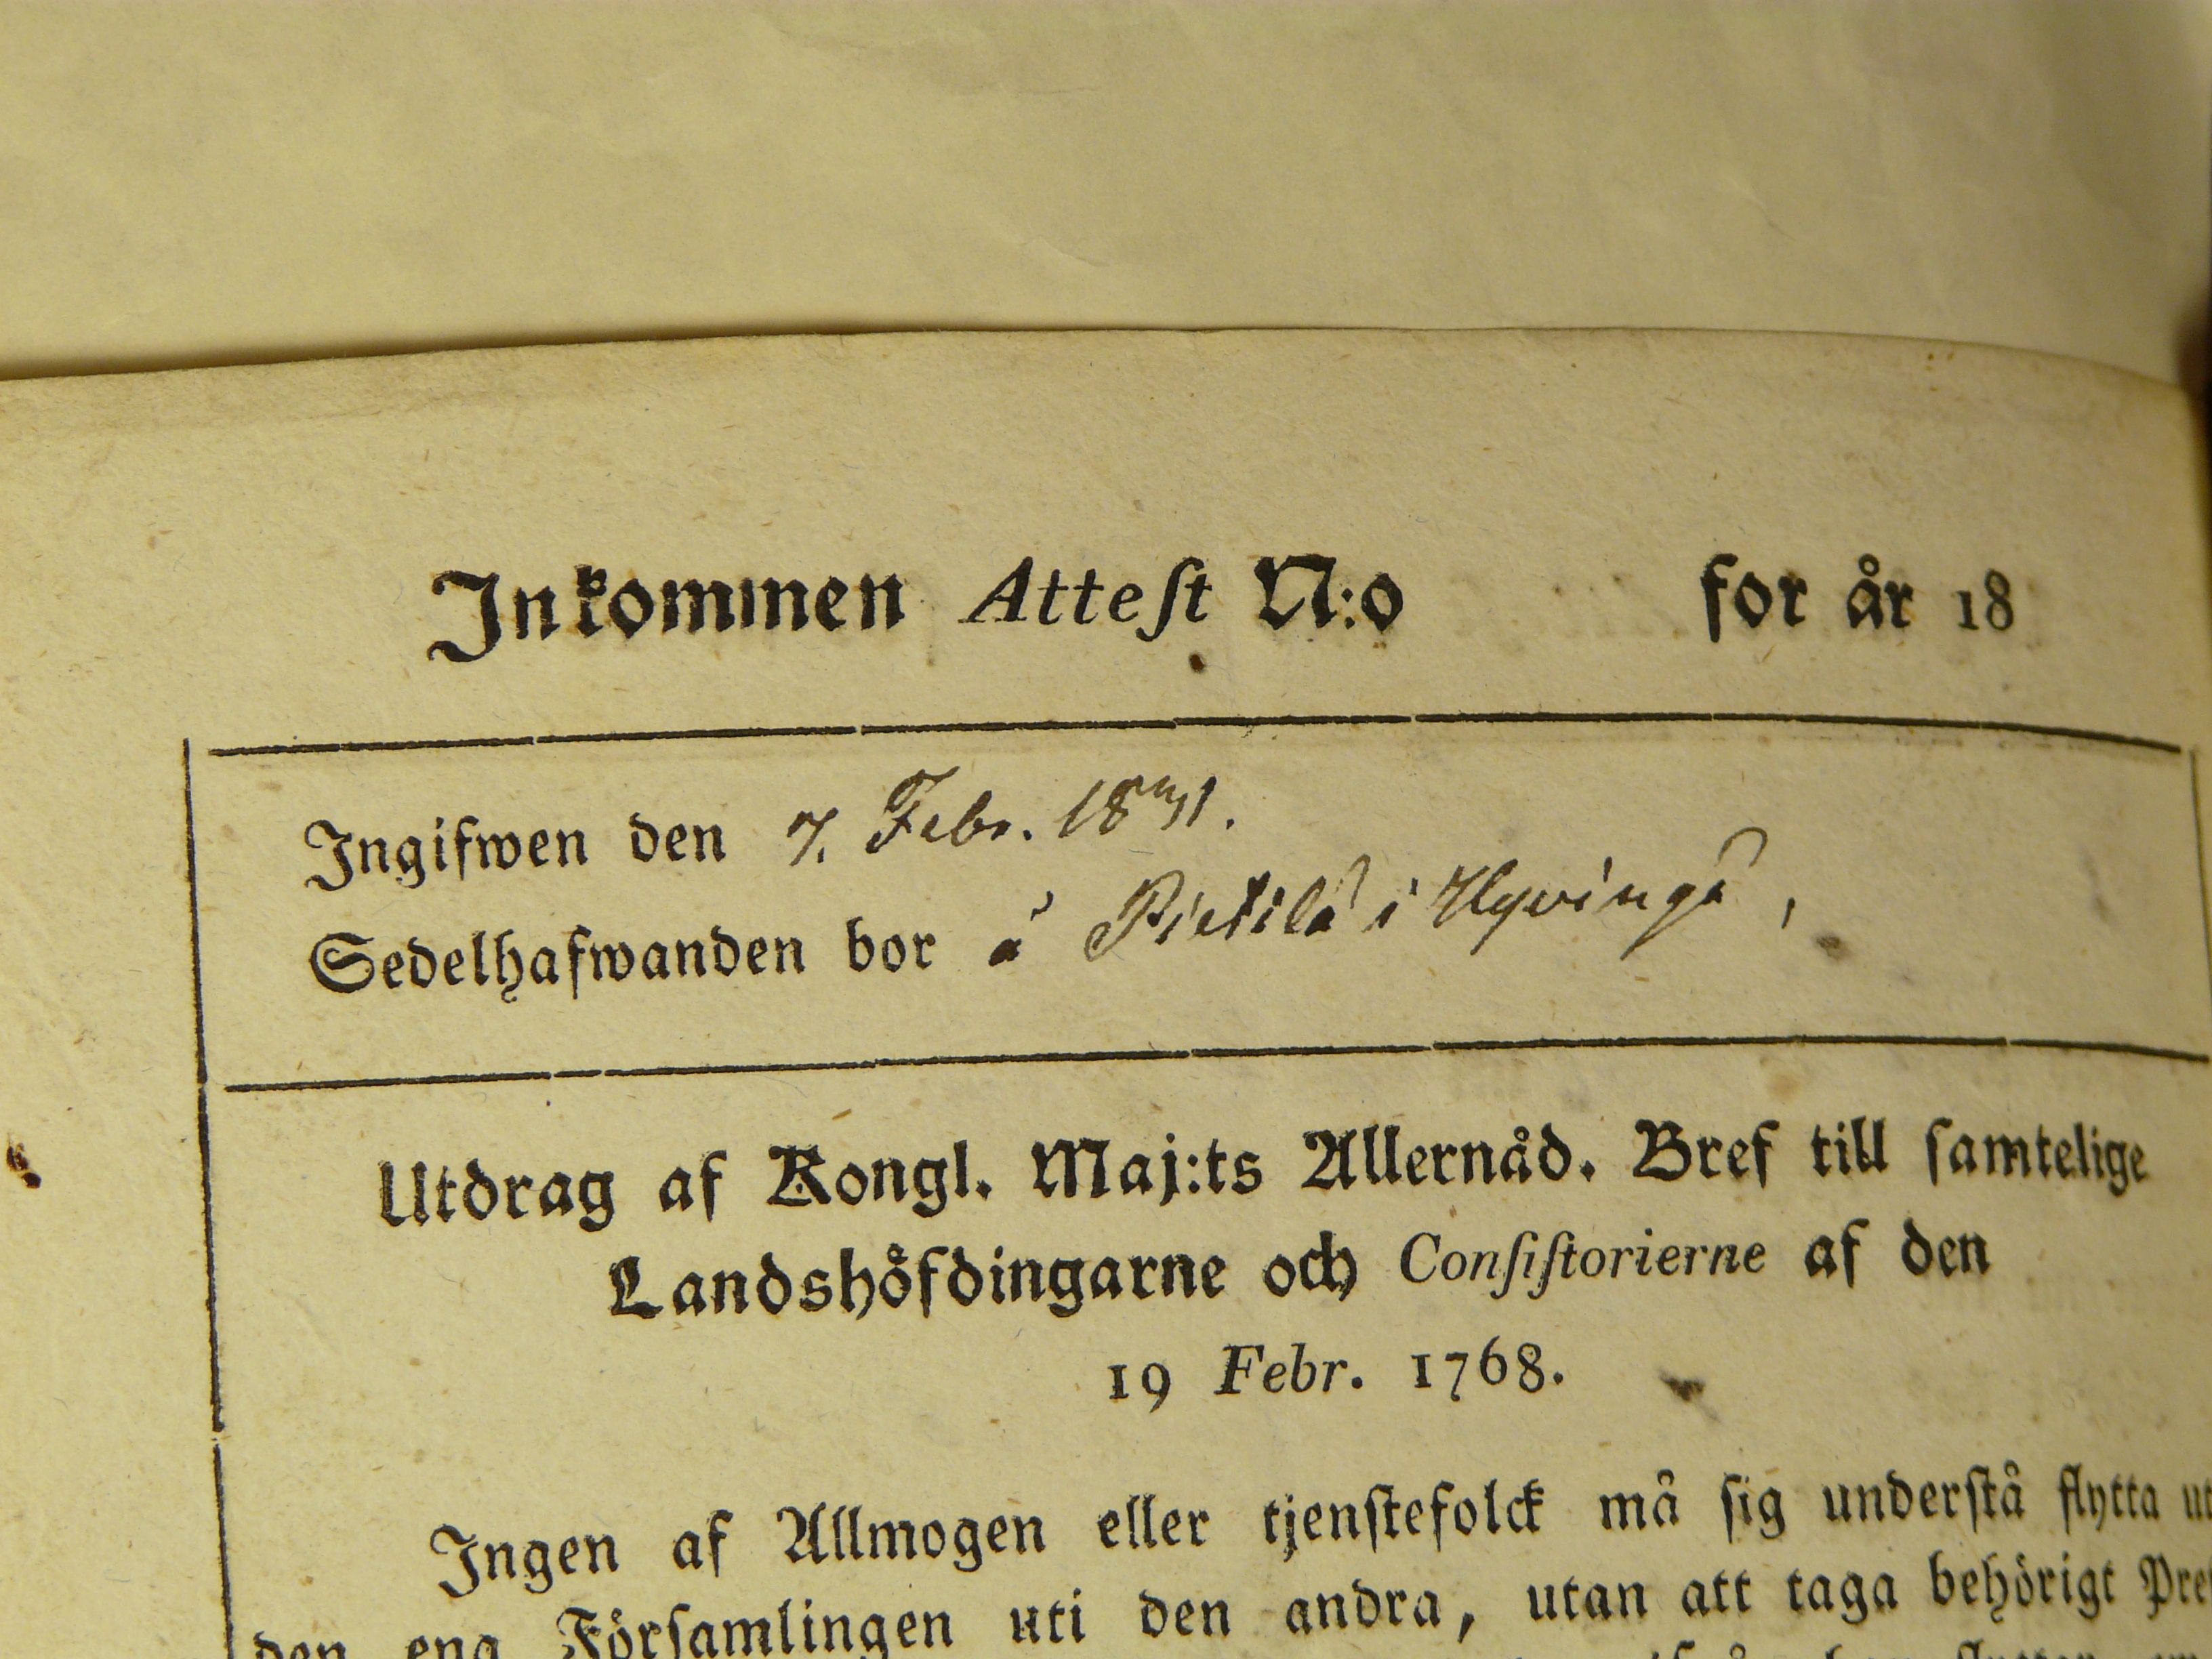 Inkommen Attest N:o for år 18
Ingifwen den 7. Febr. 1831.
Sedelhafwanden bor å Pietilä i Hyvingä,
Utdrag af Kongl. Maj:ts Allernåd. Bref till samtelige
Landshöfdingarne och Consistorierne af den
19 Febr. 1768.
Ingen af Allmogen eller tjenstefolck må sig understå flytta
den ena Församlingen uti den andra, utan att taga behörigt